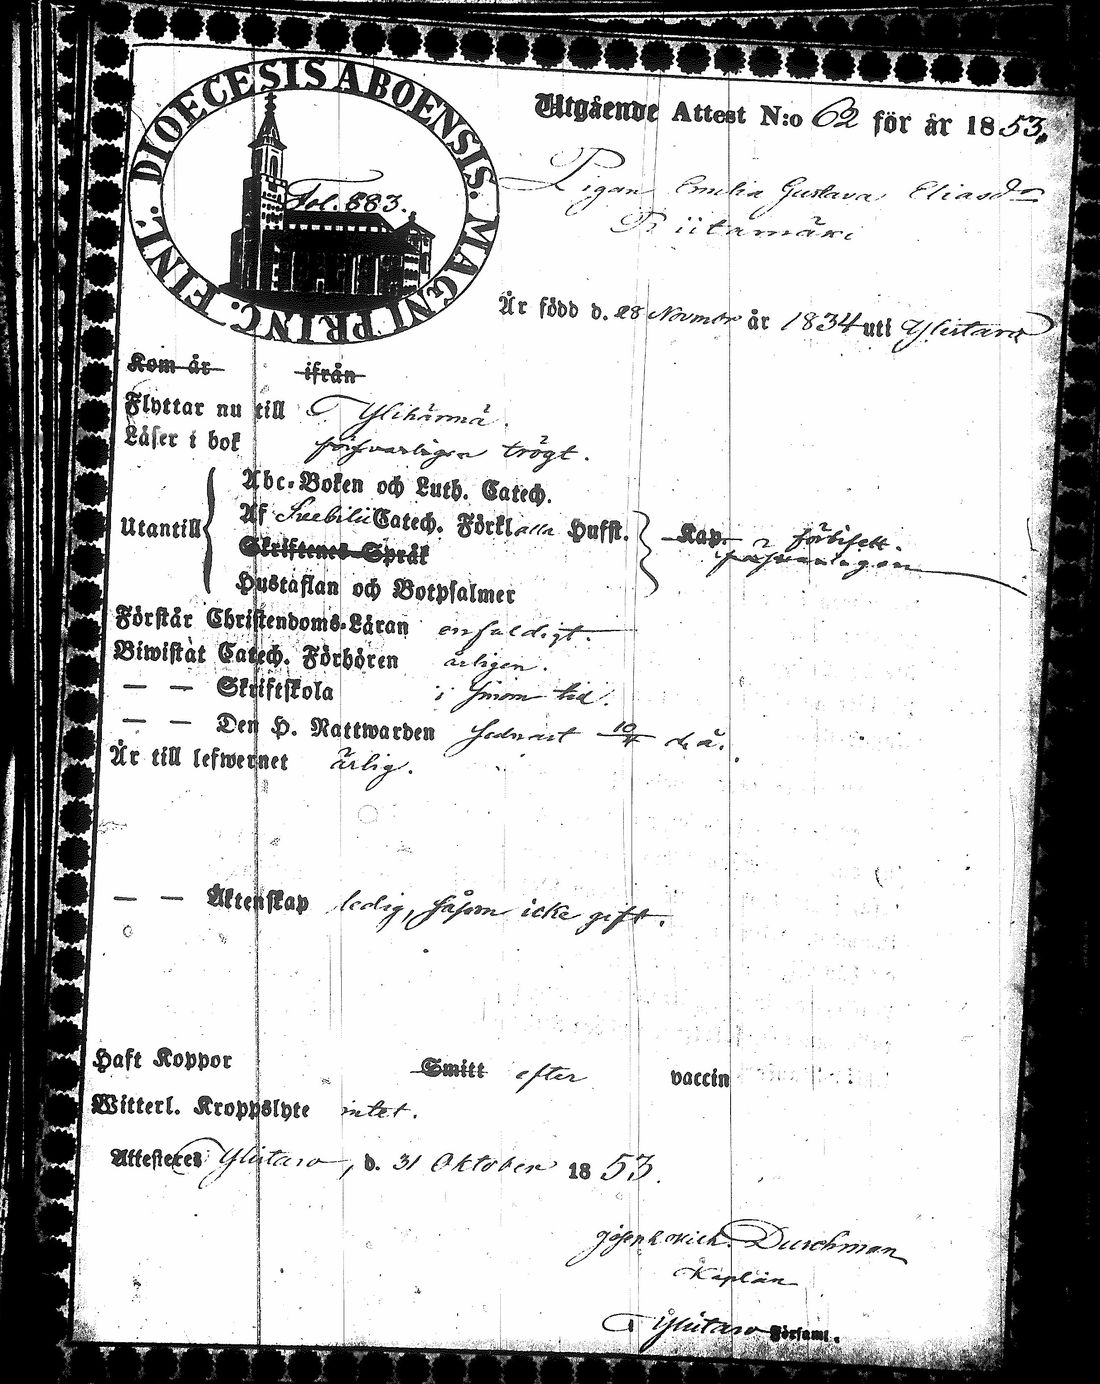 DIOECESIS ABOENSIS. MAGNI PRINC. FINL.
Fol. 583.
Utgående Attest N:o 62 för år 1853.
Pigan Emelia Gustava Eliasd:r
Riitamäki
Är född d. 28 Novmbr år 1834 uti Ylistaro
Kom år ifrån
Flyttar nu till Ylihärmä.
Läser i bok försvarligen trögt.
Abc-Boken och Luth. Catech.
Utantill Af Svebilii Catech. Förkl alla Hufst. Kap. förbisett.
försvarligen
Skriftenes Språk
Hustaflan och Botpsalmer
Förstår Christendoms-Läran enfaldigt.
Biwistat Catech. Förhören årligen.
— — Skriftskola i sinom tid.
— — Den H. Nattwarden sednast d. å.
Är till lefwernet ärlig.
— — Äktenskap ledig, såsom icke gift.
Haft Koppor Smitt efter vaccin
Witterl. Kroppslyte intet.
Attesteres Ylistaro, d. 31 Oktober 1853.
Durchman
Kaplan
Ylistaro Församl.